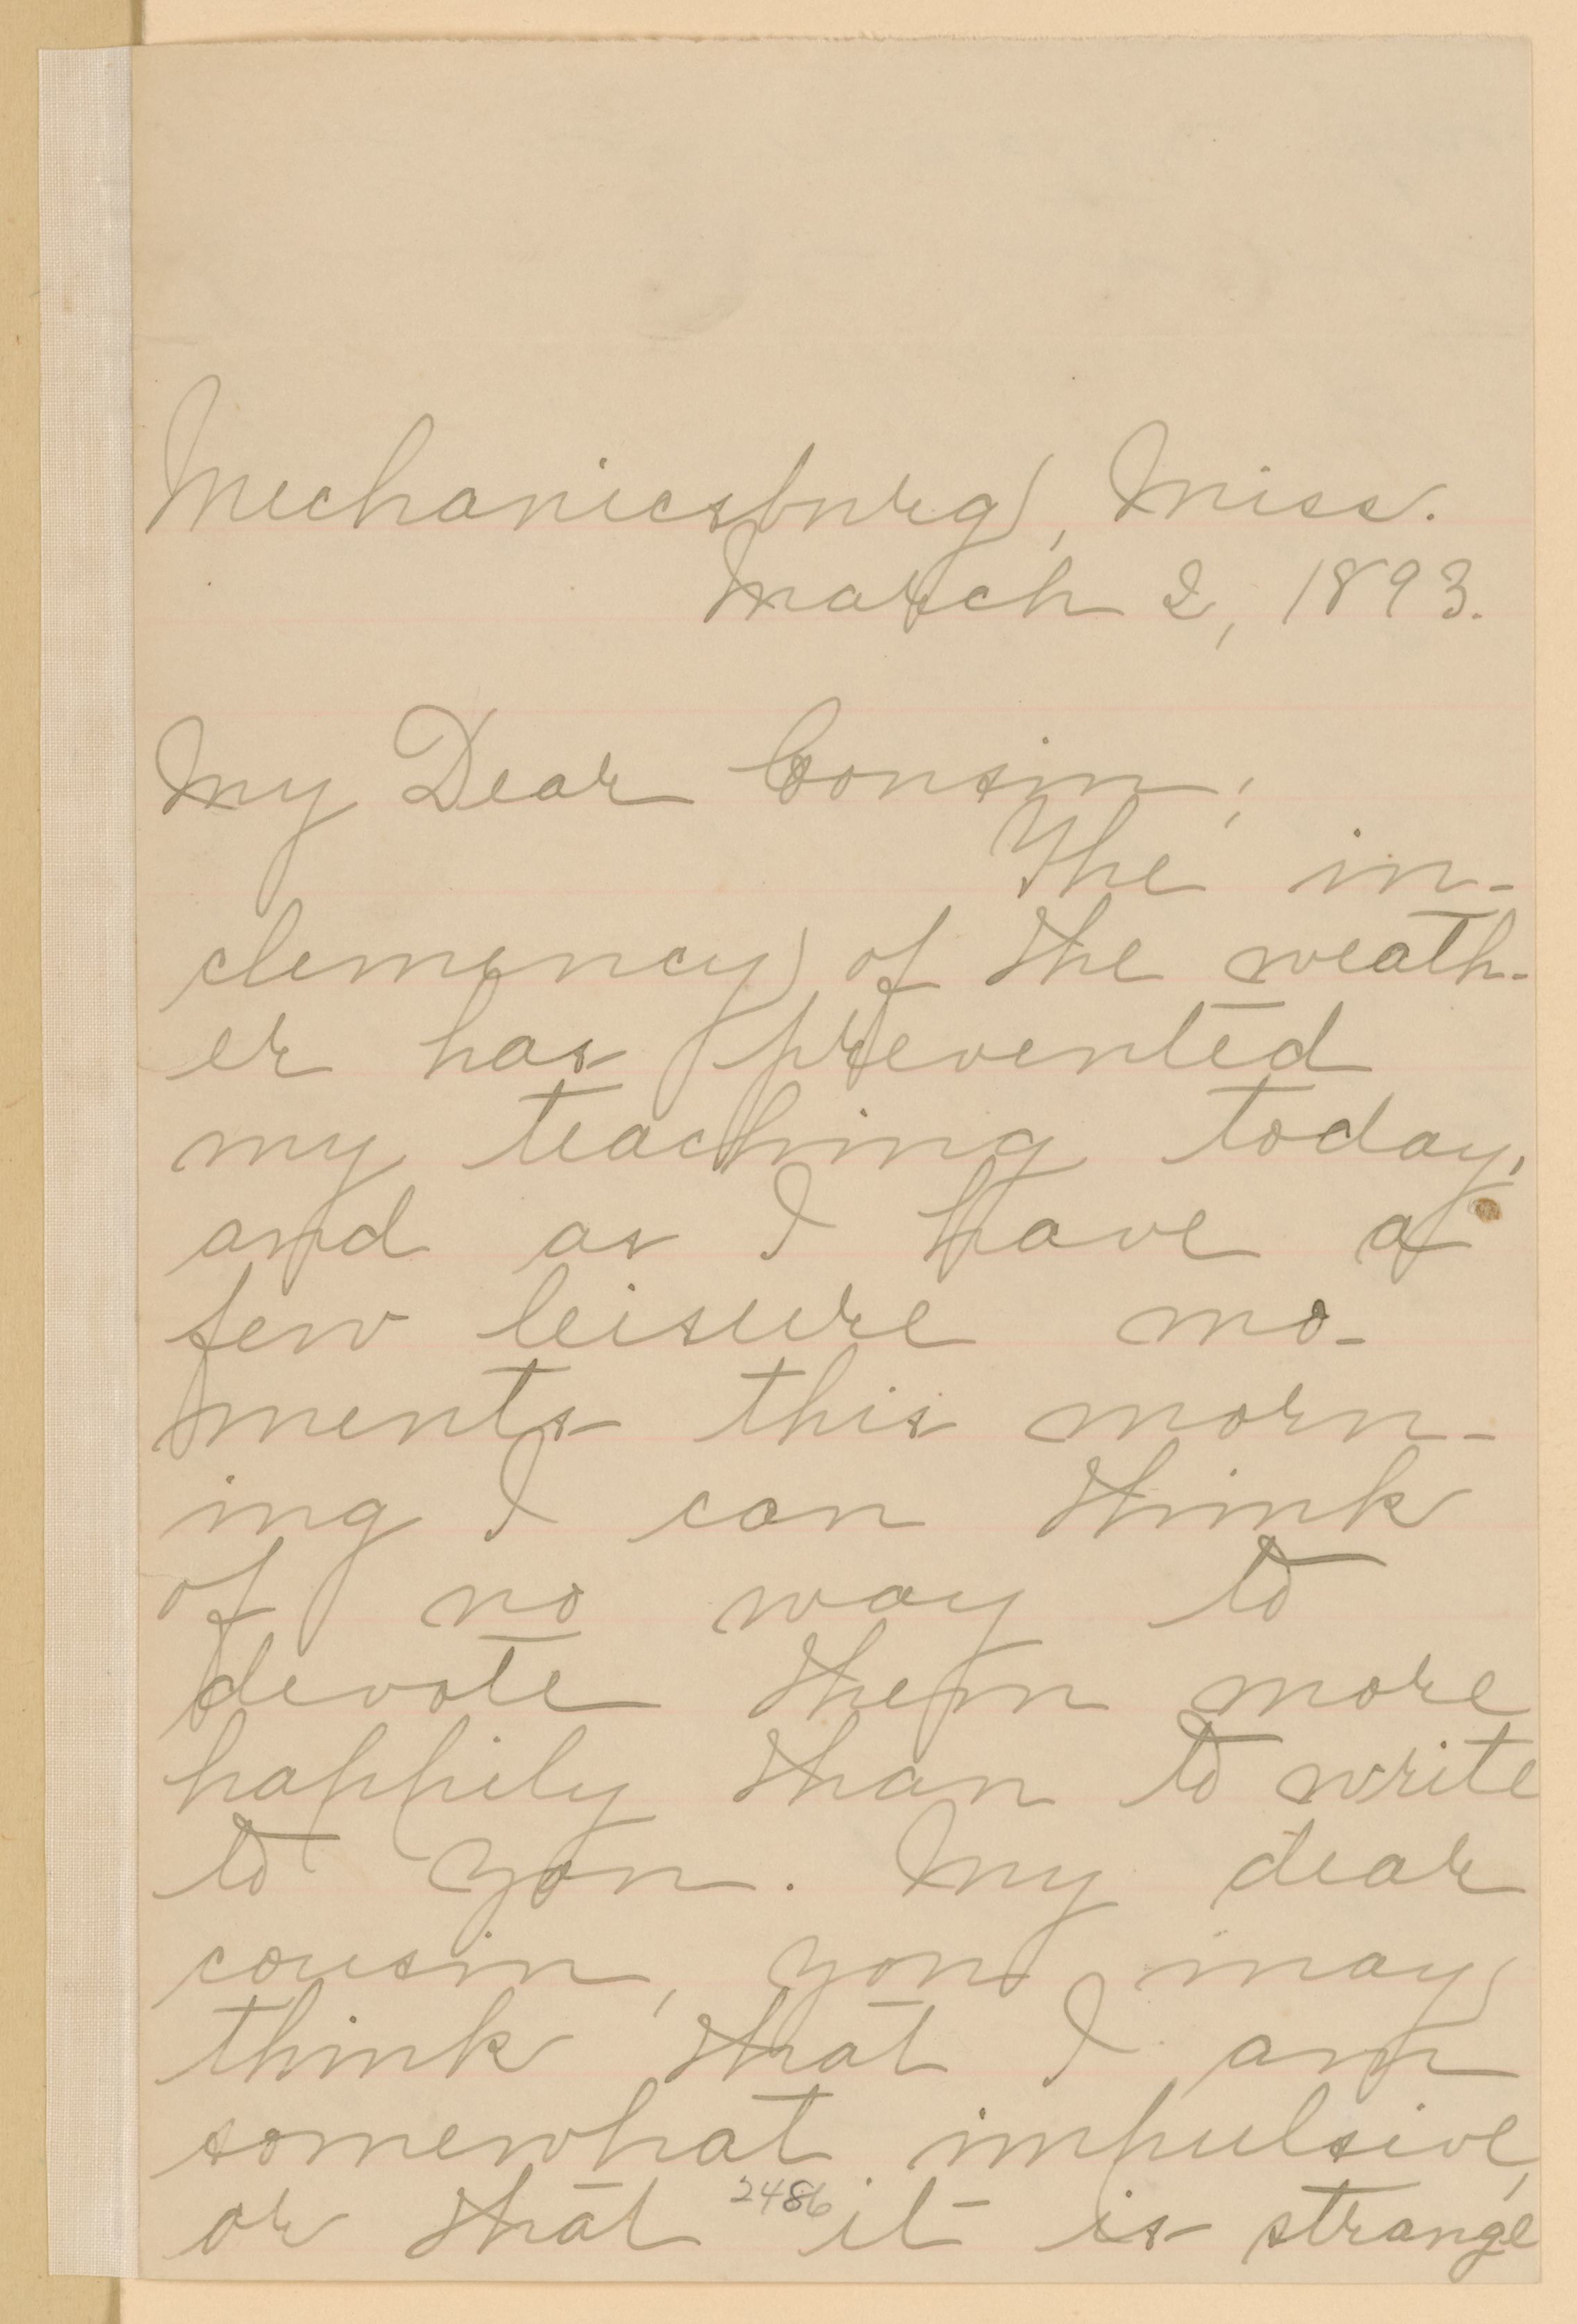 Mechanicsburg, Miss.
March 2, 1893.
My Dear Cousin;
The in-
clemency of the weath-
er has prevented
my teaching today,
and as I have a
few leisure mo-
ments this morn-
ing I can think
of no way to
devote them more
happily than to write
to you. My dear
cousin, you may
think that I am
somewhat impulsive,
or that it is strange
2486